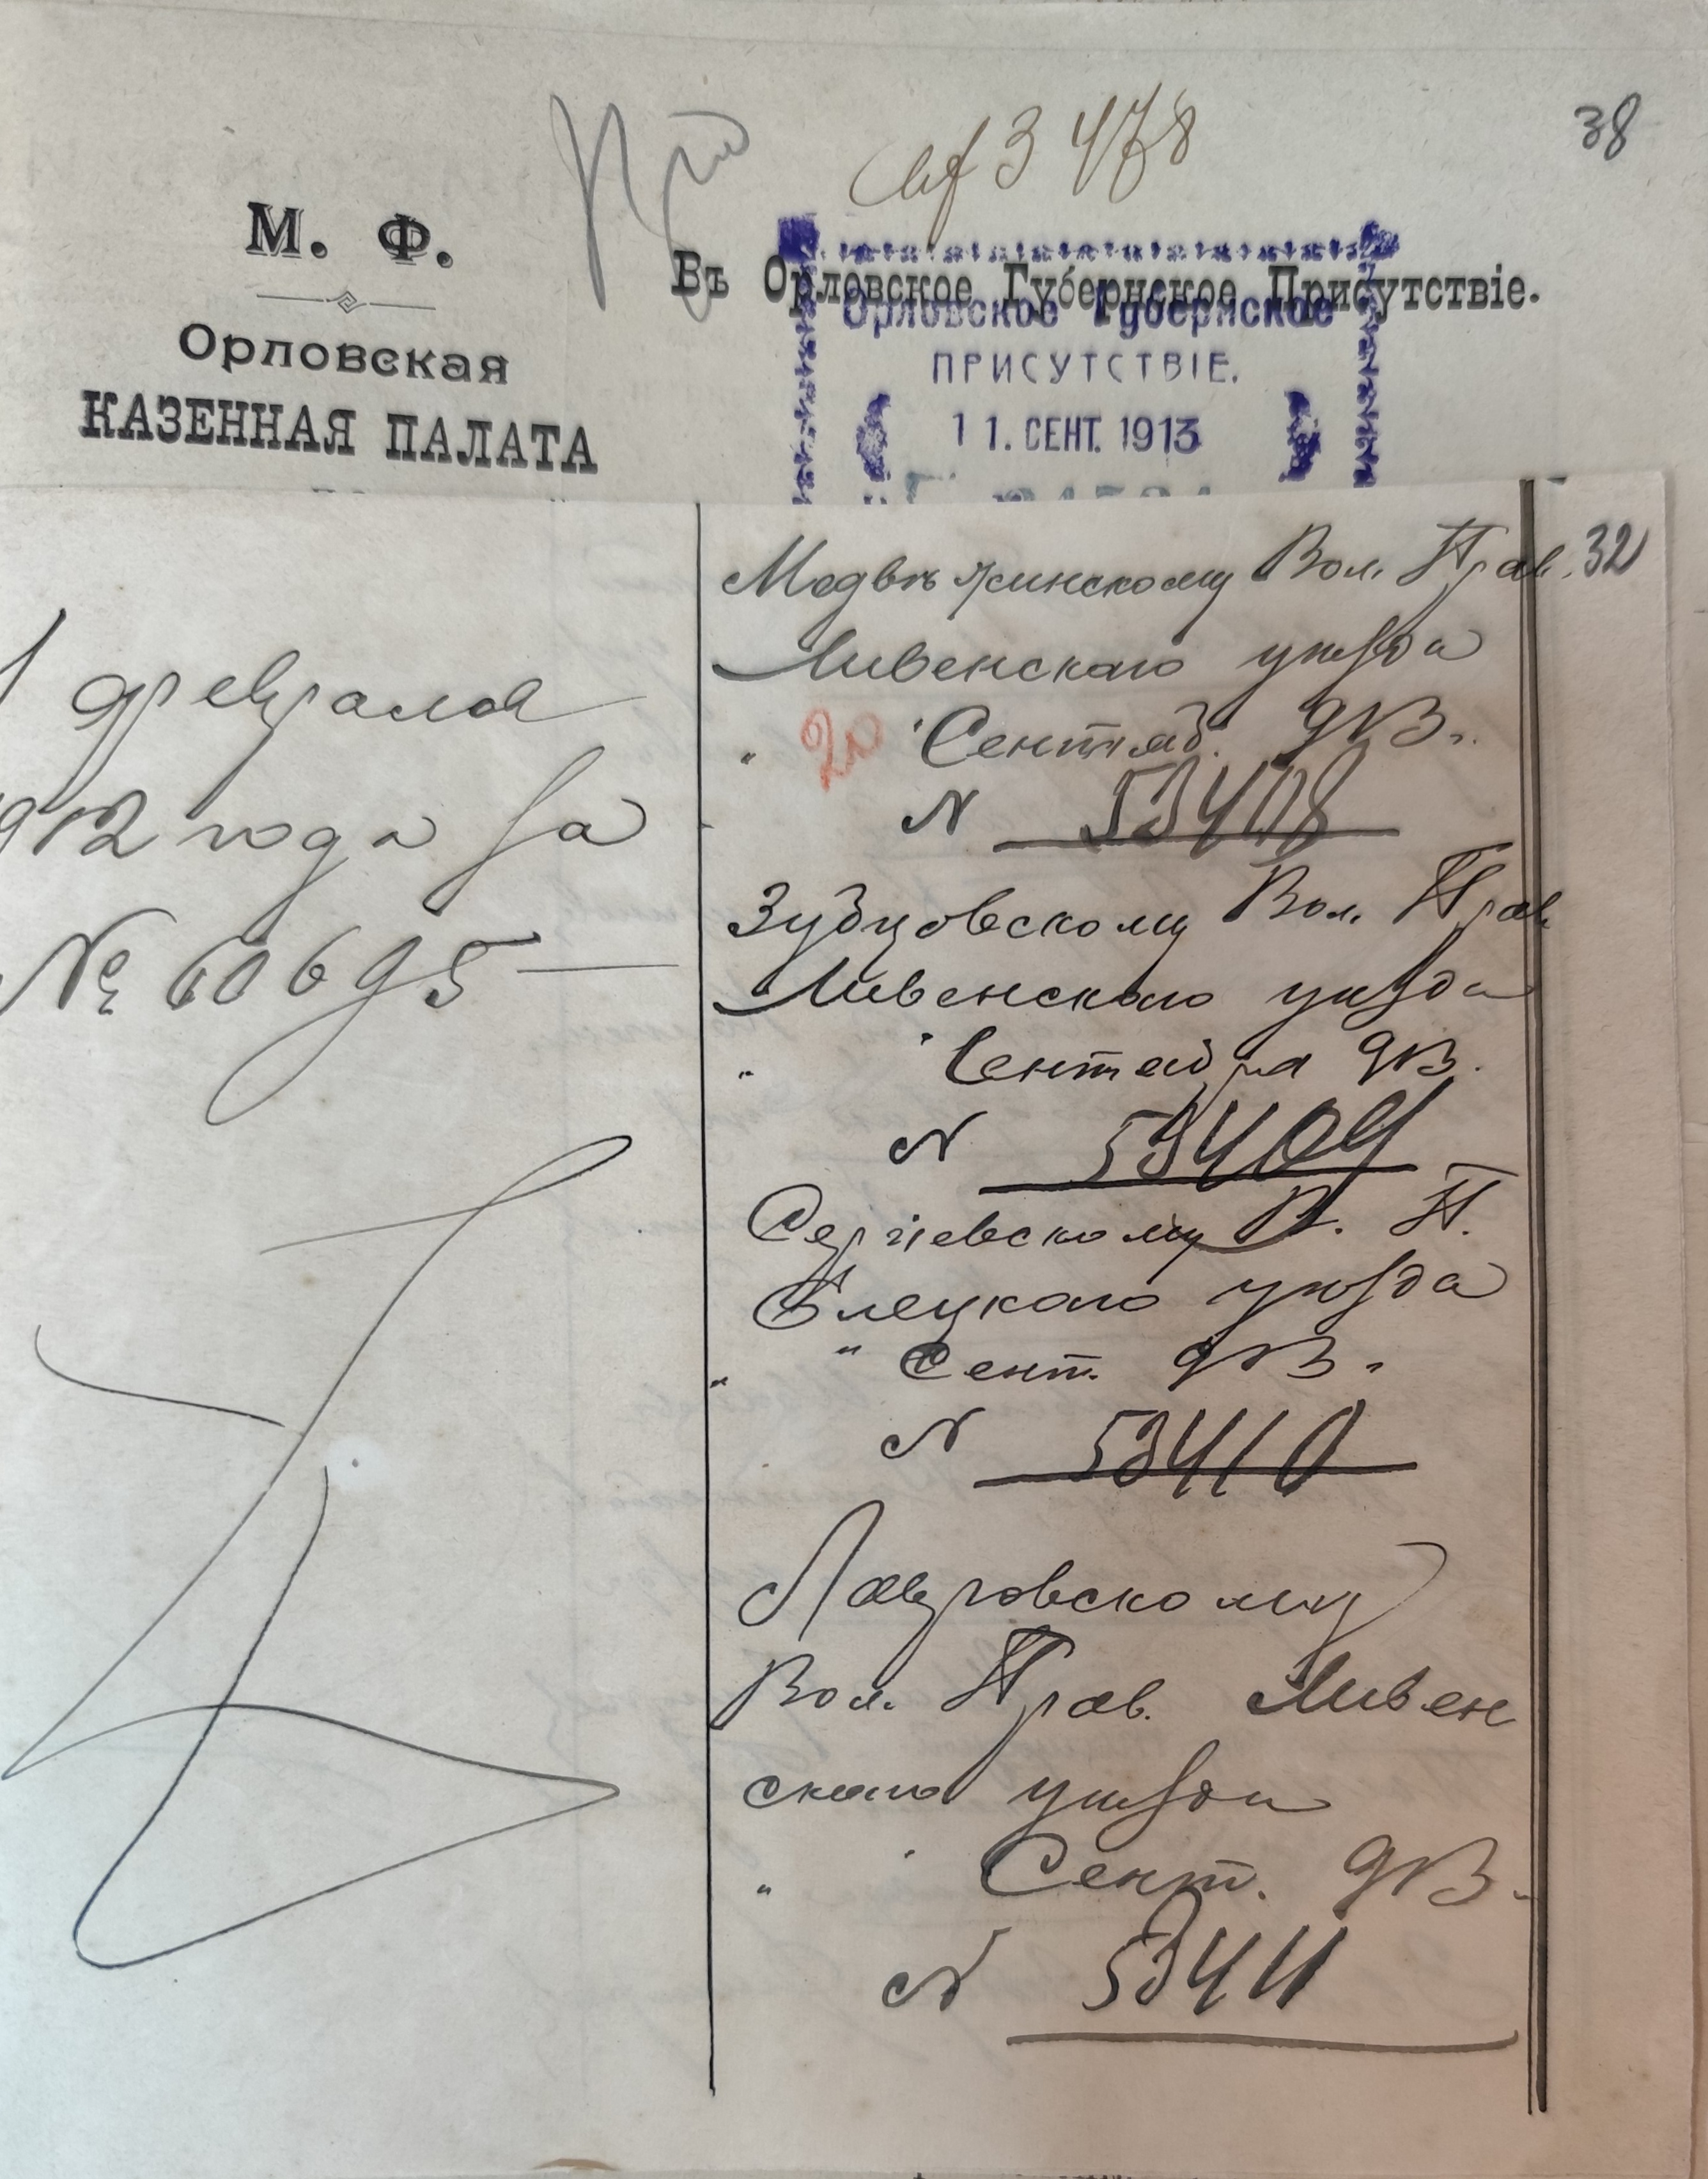 38
3478
М. Ф.
Орловская
КАЗЕННАЯ ПАЛАТА
Въ Орловское Губернское Присутствіе.
Орловское Губернское
ПРИСУТСТВІЕ.
11. СЕНТ. 1913
32
февраля
912 года за
№ 60695
Медвѣжинскому Вол. Прав.
Ливенскаго уѣзда
" 20 " Сентяб. 913.
N 53408
Зубцовскому Вол. Прав.
Ливенскаго уѣзда
" " Сентября 913.
N 53409
Сергіевскому В. П.
Елецкаго уѣзда
" " Сент. 913.
N 53410
Лавровскому
Вол. Прав. Ливен
скаго уѣзда
" " Сент. 913.
N 53411